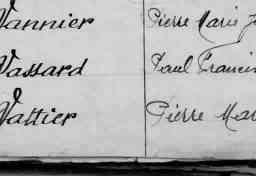 Vannier Pierre Marie
Vassard Paul Francis
Vattier Pierre Mar